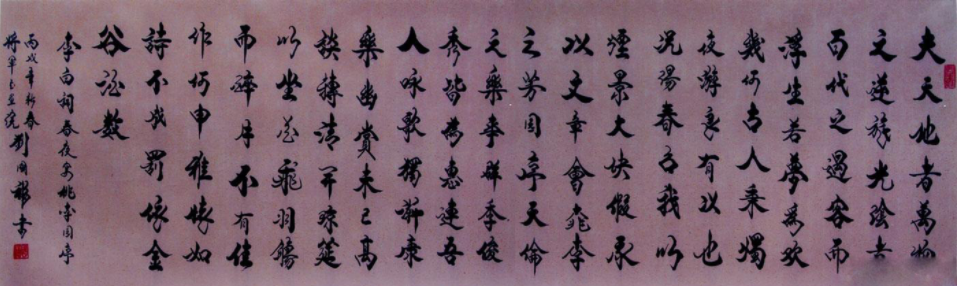 夫天地者萬物
之逆旅光陰者
百代之過客而
浮生若夢為歡
幾何古人秉燭
夜遊良有以也
況陽春召我以
煙景大塊假我
以文章會桃李
之芳園序天倫
之樂事群季俊
秀皆為惠連吾
人詠歌獨慚康
樂幽賞未已高
談轉清開瓊筵
以坐花飛羽觴
而醉月不有佳
作何申雅懷如
詩不成罰依金
谷酒數
李白詞春夜宴桃李園序
丙戌年新春
將軍書